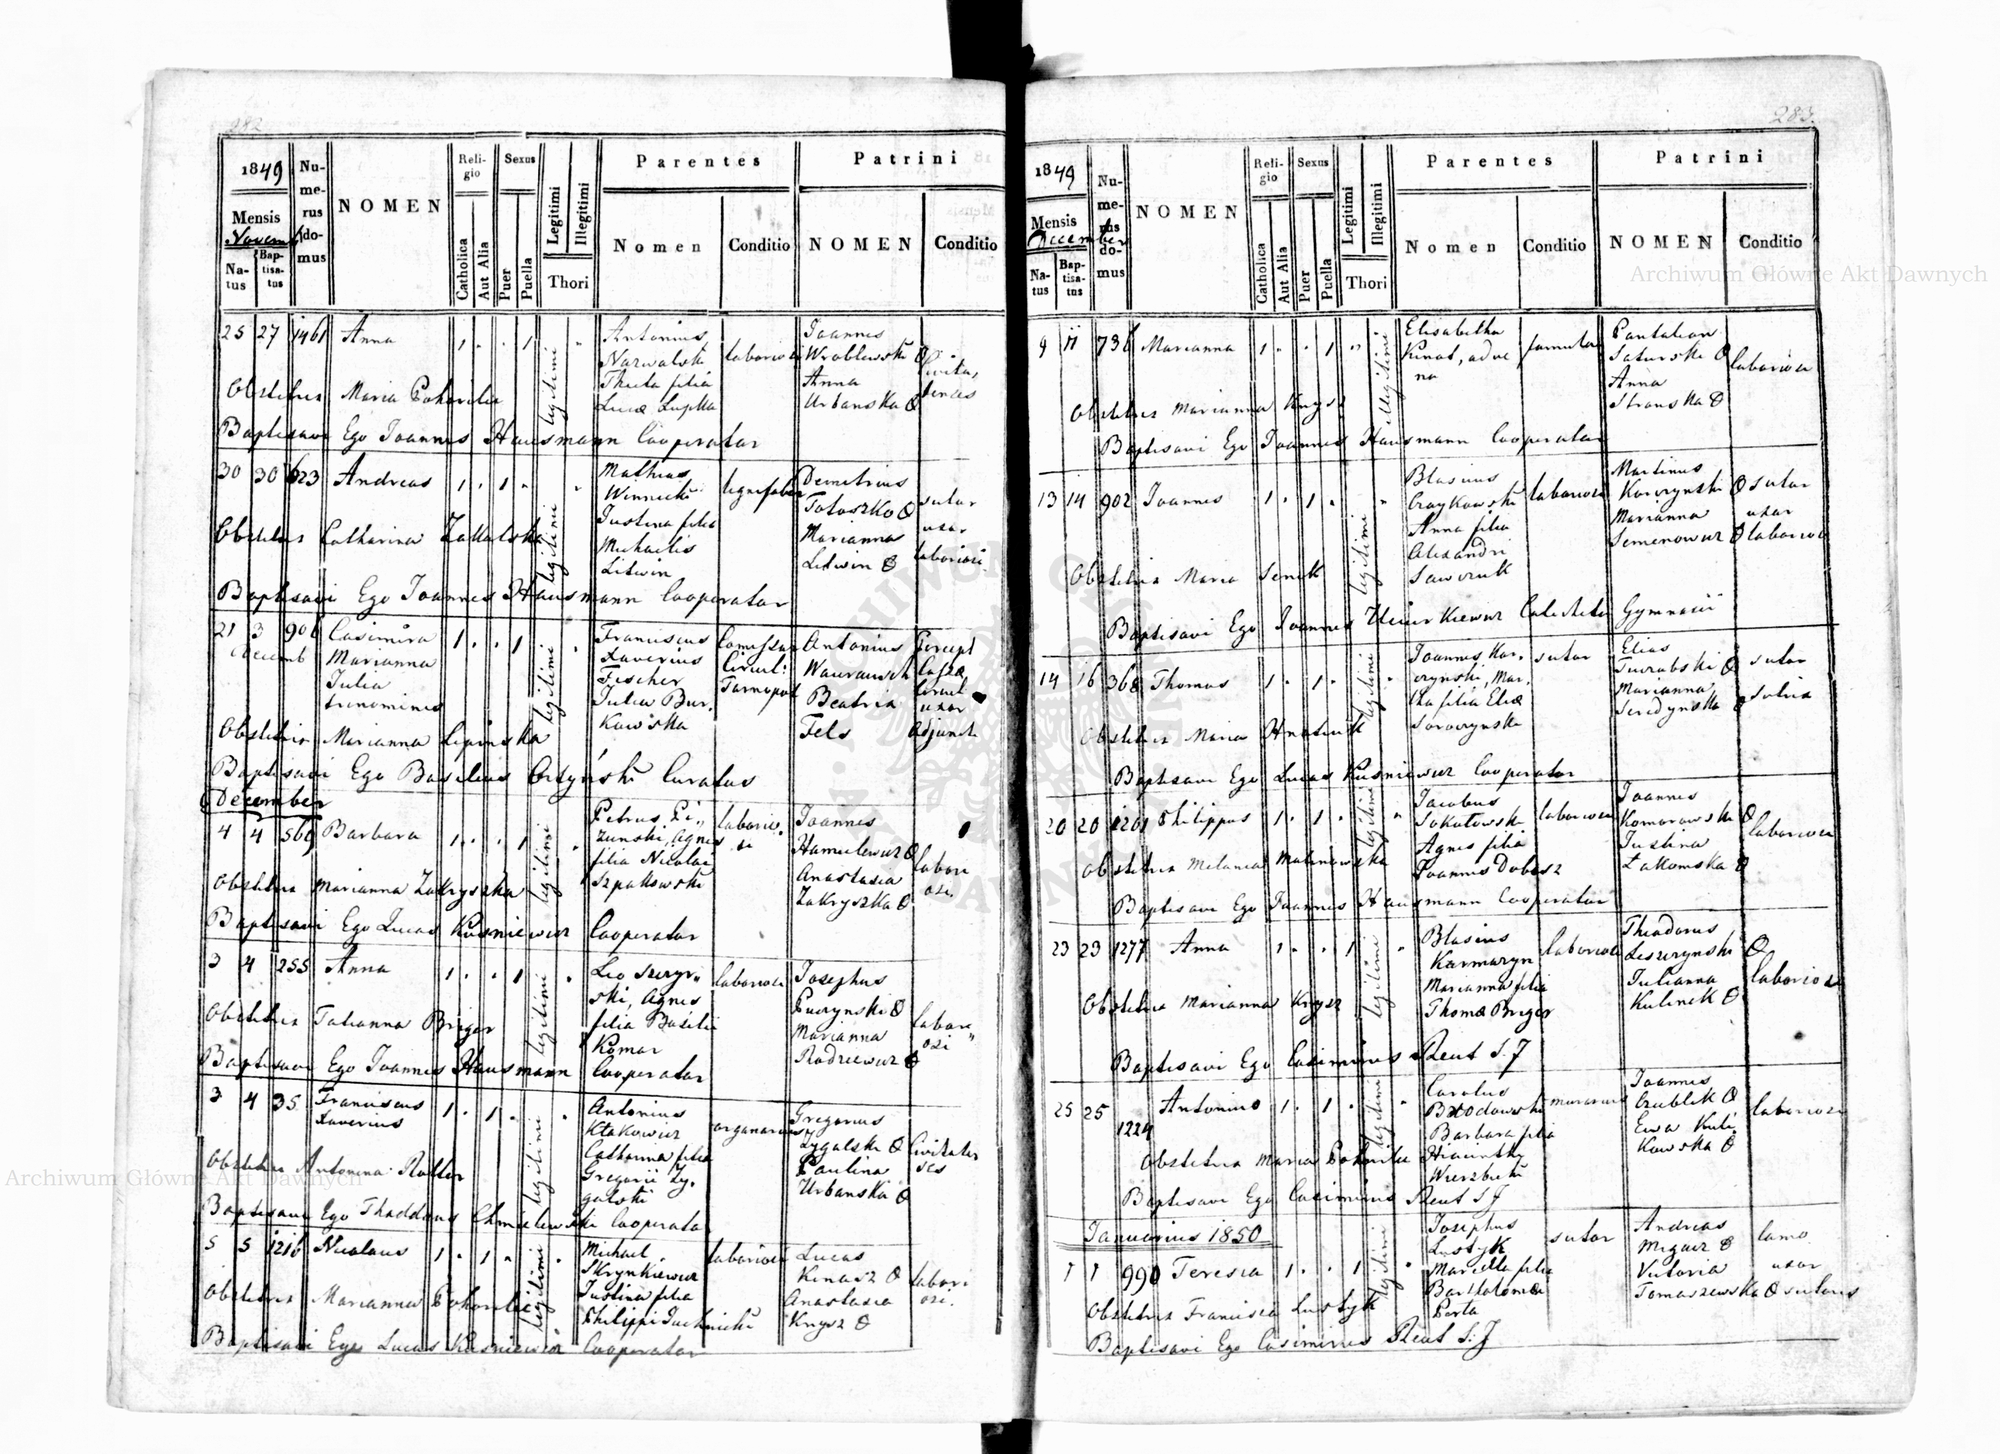 282
1849
Mensis
Novemb
Na-
tus
Bap-
tisa-
tus
Nu-
me-
rus
do-
mus
NOMEN
Reli-
gio
Catholica
Aut Alia
Sexus
Puer
Puella
Legitimi
Illegitimi
Thori
Parentes
Nomen
Conditio
Patrini
NOMEN
Conditio
25 27 1461 Anna 1 . . 1 legitimi
Antonius
Narwalski
Thecla filia
Lucæ Lupka
laboriosi
Joannes
Wroblewski
Anna
Urbanska
Obstetrix Maria Pohorila
Baptisavi Ego Joannes Hausmann Cooperator
30 30 623 Andreas 1 . 1 . legitimi
Mathias
Winnicki
Justina filia
Michaelis
Litwin
lignifaber
Demetrius
Toloszko
Marianna
Litwin
sutor
uxor
laboriosi
Obstetrix Catharina Zakalska
Baptisavi Ego Joannes Hausmann Cooperator
21 3 906 Casimira
Decemb Marianna
Julia
trinominis
1 . . 1 legitimi
Franciscus
Xaverius
Fischer
Julia Bur-
kowska
Circul:
Tarnopol
Antonius
Beatrix
Fels
uxor
Adjunct
Obstetrix Marianna Lipinska
Baptisavi Ego Basilius Ortyński Curatus
December
4 4 569 Barbara 1 . . 1 legitimi
Petrus Pi-
zunski, Agnes
filia Nicolai
Szpakowski
laborio-
si
Joannes
Anastasia
Zakryszka
labori
osi
Obstetrix Marianna Zakryszka
Baptisavi Ego Lucas Kusniewicz Cooperator
3 4 255 Anna 1 . . 1 legitimi
ski, Agnes
filia Basilii
Komar
laboriosi
Josephus
Marianna
Radziewicz
labori
osi
Obstetrix Tatianna Briger
Baptisavi Ego Joannes Hausmann Cooperator
3 4 35 Franciscus
Xaverius
1 . 1 . legitimi
Antonius
Kłakowicz
Catharina filia
Gregorii Zy-
galski
organarius
Gregorius
Zygalski
Paulina
Urbanska
Civitaten
ses
Obstetrix Antonina Rotter
Baptisavi Ego Thaddæus Chmielewski Cooperator
5 5 1216 Nicolaus 1 . 1 . legitimi
Michael
Skrynkiewicz
Justina filia
Philippi Juchnicki
laboriosi
Lucas
Kinasz
Anastasia
Knysz
labori
osi.
Obstetrix Marianna Pohorila
Baptisavi Ego Lucas Kusniewicz Cooperator
283.
1849
Mensis
December
Na-
tus
Bap-
tisa-
tus
Nu-
me-
rus
do-
mus
NOMEN
Reli-
gio
Catholica
Aut Alia
Sexus
Puer
Puella
Legitimi
Illegitimi
Thori
Parentes
Nomen
Conditio
Patrini
NOMEN
Conditio
9 11 736 Marianna 1 . . 1 illegitimi
Elisabetha
Kunat, adve
na
famula
Pantaleon
Saturski
Anna
Stronska
laboriosi
Obstetrix Marianna Knysz
Baptisavi Ego Joannes Hausmann Cooperator
13 14 902 Joannes 1 . 1 . legitimi
Blasius
Czaykowski
Anna filia
Alexandri
Sawczuk
laboriosi
Martinus
Korczynski
Marianna
Semenowicz
sutor
uxor
laboriosi
Obstetrix Maria Senik
Baptisavi Ego Joannes Catecheta Gymnasii
14 16 368 Thomas 1 . 1 . legitimi
Joannes Kor-
czynski, Mar-
tha filia Eliæ
Soroczynski
sutor
Elias
Marianna
Seredynska
sutor
Obstetrix Maria Hnatiuk
Baptisavi Ego Lucas Kusniewicz Cooperator
20 20 1261 Philippus 1 . 1 . legitimi
Jacobus
Sokolowski
Agnes filia
Joannis Dobosz
laboriosi
Joannes
Komorowski
Justina
Zakomska
laboriosi
Obstetrix Melania Malinowska
Baptisavi Ego Joannes Hausmann Cooperator
23 23 1277 Anna 1 . . 1 legitimi
Blasius
Karmazyn
Marianna filia
Thomæ Briger
laboriosi
Theodorus
Leszczynski
Julianna
Kulinek
laboriosi
Obstetrix Marianna Knysz
Baptisavi Ego Casimirus Rent S. J
25 25 1224 Antonius 1 . 1 . legitimi
Carolus
Brodowski
Barbara filia
Hiacinthi
Wierzbicki
murarius
Joannes
Ewa Kuli-
kowska
laboriosi
Obstetrix Maria Pohorila
Baptisavi Ego Casimirus Rent S J
Januarius 1850
1 1 990 Teresia 1 . . 1 legitimi
Josephus
Lustyk
Marcella filia
Bartholomæi
Perta
sutor
Andreas
Victoria
Tomaszewska
uxor
sutoris
Obstetrix Francisca Lustyk
Baptisavi Ego Casimirus Rent S. J
Archiwum Główne Akt Dawnych
Archiwum Główne Akt Dawnych